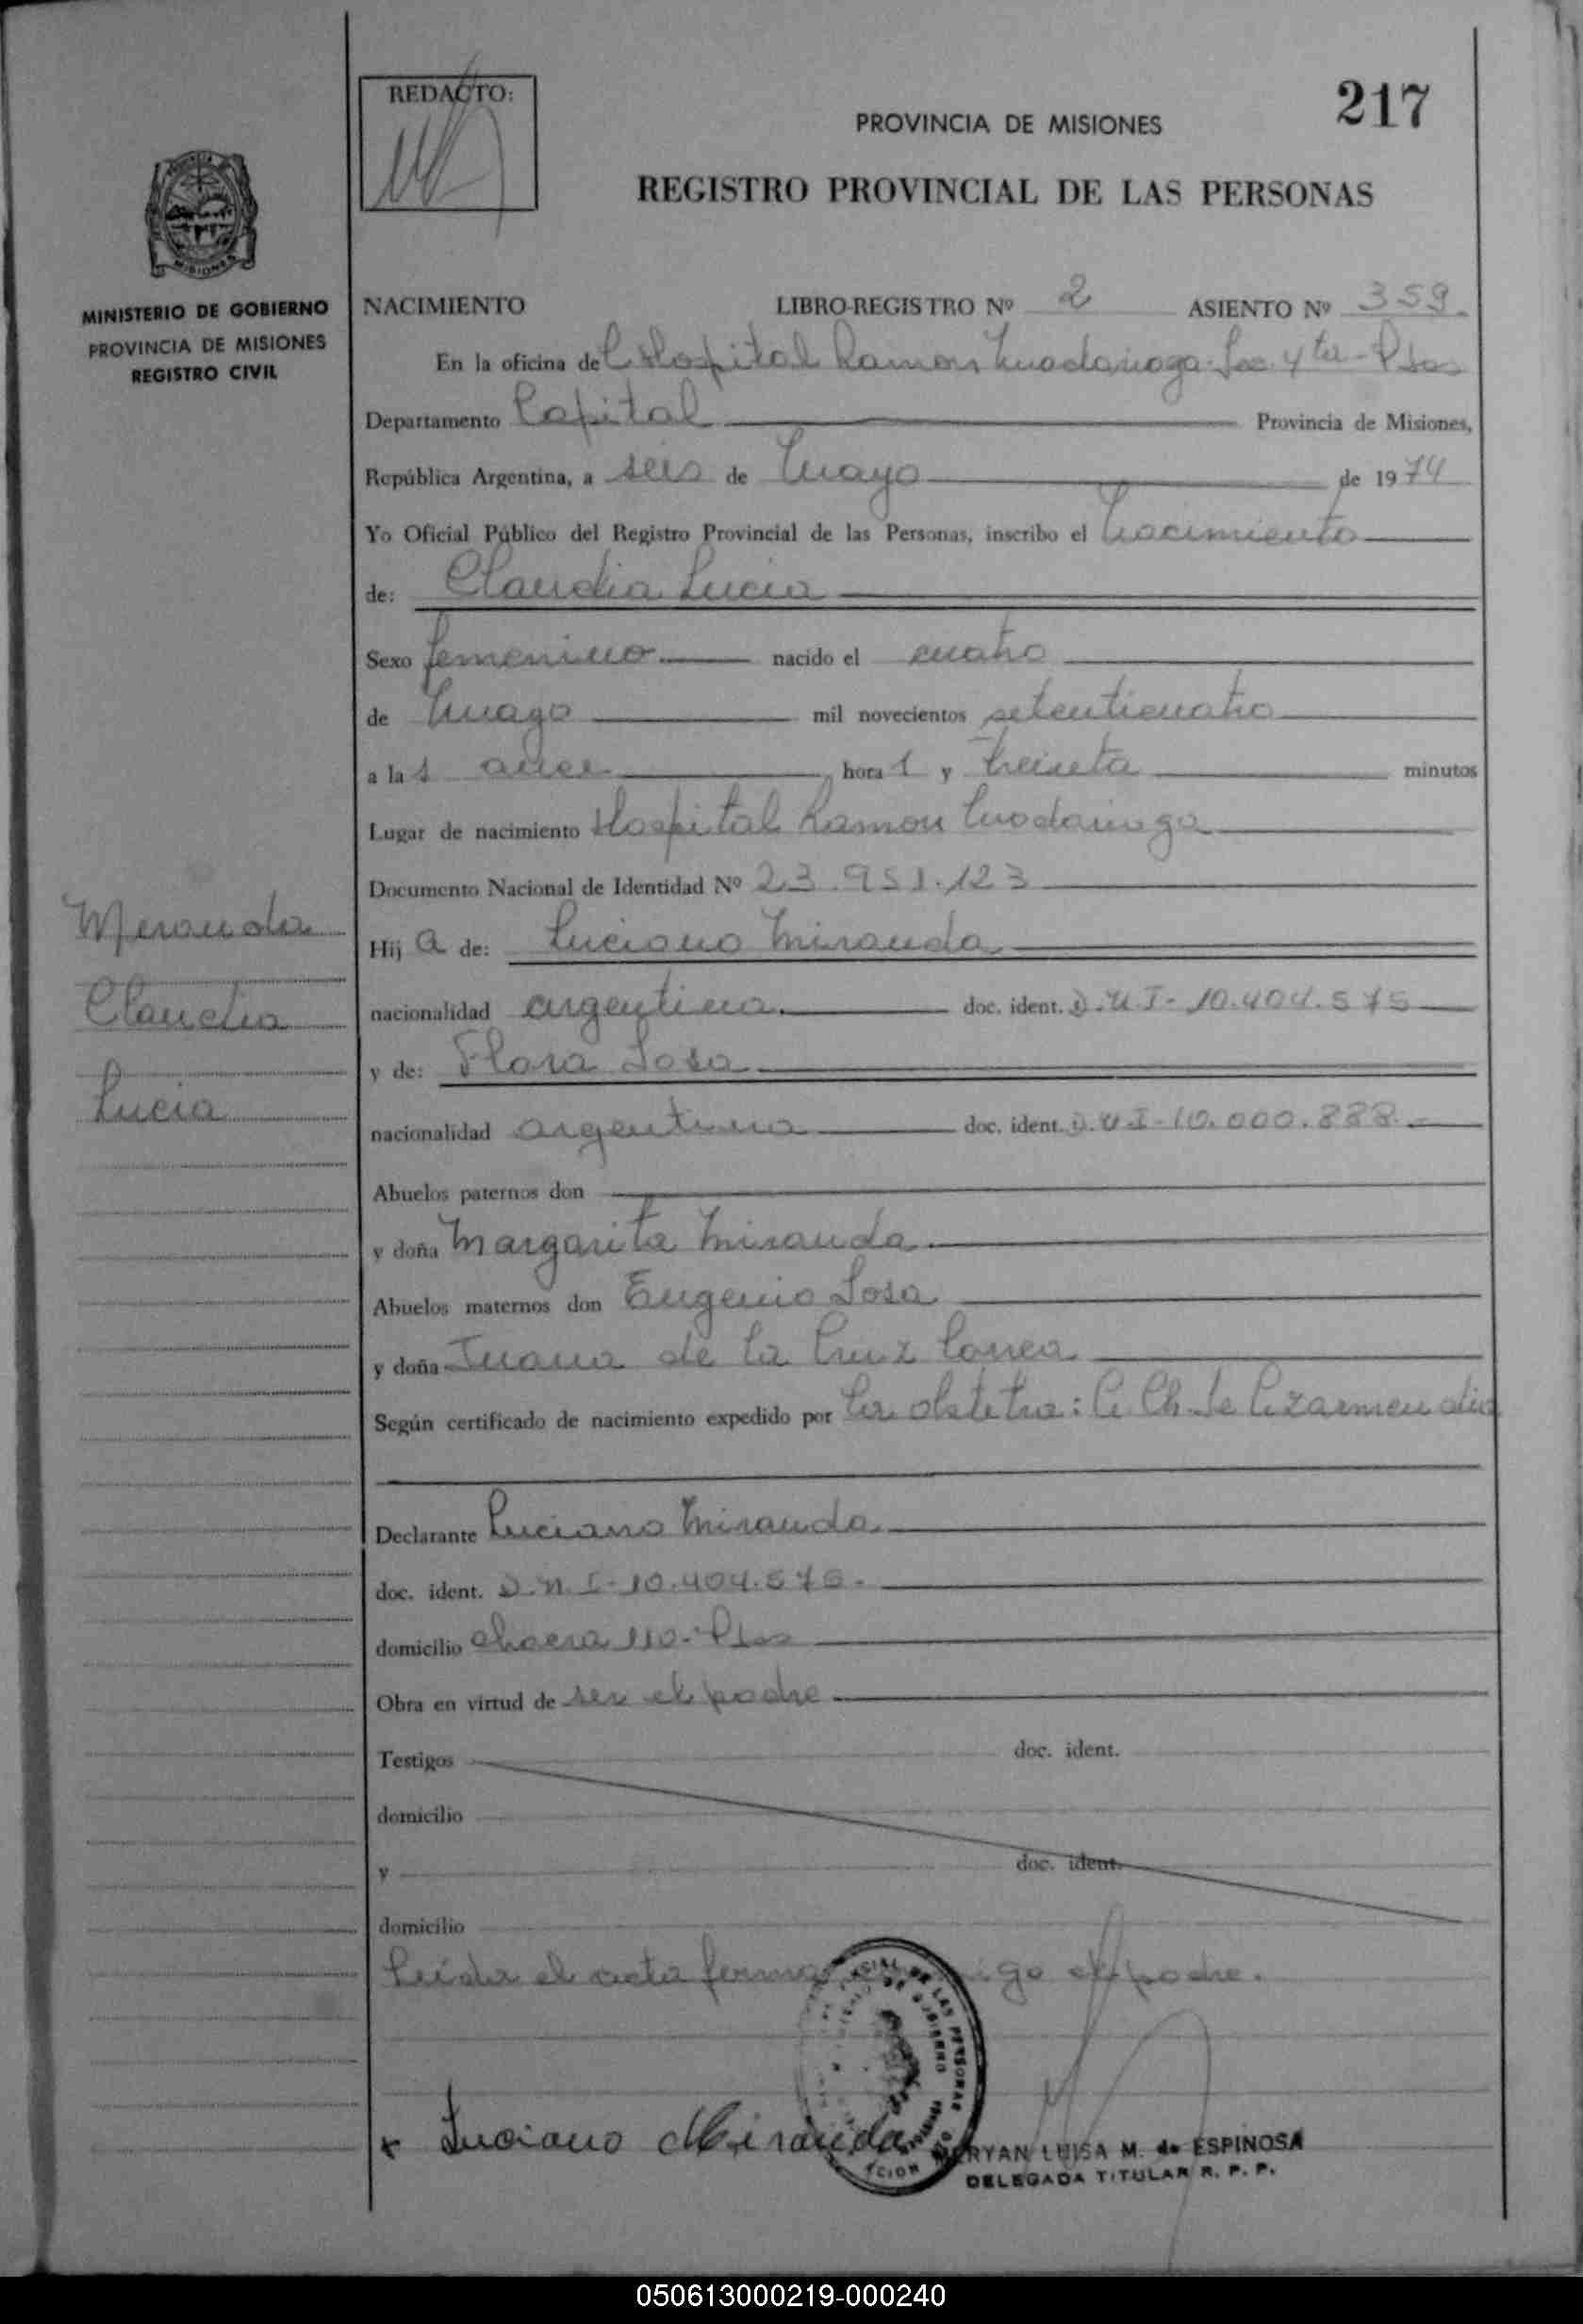 217
REDACTO:
PROVINCIA DE MISIONES
REGISTRO PROVINCIAL DE LAS PERSONAS
MINISTERIO DE GOBIERNO
PROVINCIA DE MISIONES
REGISTRO CIVIL
NACIMIENTO LIBRO-REGISTRO Nº 2 ASIENTO Nº 359.
En la oficina de Hospital Ramon Madariaga Sec. 4ta - Pdas
Departamento Capital Provincia de Misiones,
República Argentina, a seis de Mayo de 1974
Yo Oficial Público del Registro Provincial de las Personas, inscribo el Nacimiento
de: Claudia Lucia
Sexo femenino nacido el cuatro
de Mayo mil novecientos setenticuatro
a las once horas y treinta minutos
Lugar de nacimiento Hospital Ramon Madariaga
Documento Nacional de Identidad Nº 23.951.123
Miranda
Claudia
Lucia
Hija de: Luciano Miranda
nacionalidad argentina doc. ident. D.N.I- 10.404.575
y de: Flora Sosa
nacionalidad argentina doc. ident. D.N.I-10.000.888.
Abuelos paternos don
y doña Margarita Miranda
Abuelos maternos don Eugenio Sosa
y doña Juana de la Cruz Correa
Según certificado de nacimiento expedido por la obstetra:
Declarante Luciano Miranda
doc. ident. D.N.I-10.404.575.
domicilio chacra 110-Pdas
Obra en virtud de ser el padre
Testigos doc. ident.
domicilio
y doc. ident.
domicilio
Leída el acta firma go el padre.
x Luciano Miranda
MERYAN LUISA M. de ESPINOSA
DELEGADA TITULAR R. P. P.
050613000219-000240